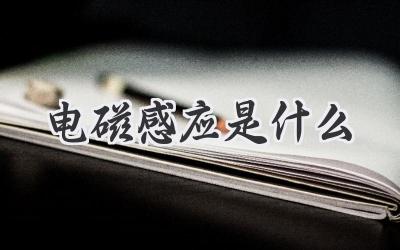 电磁感应是什么